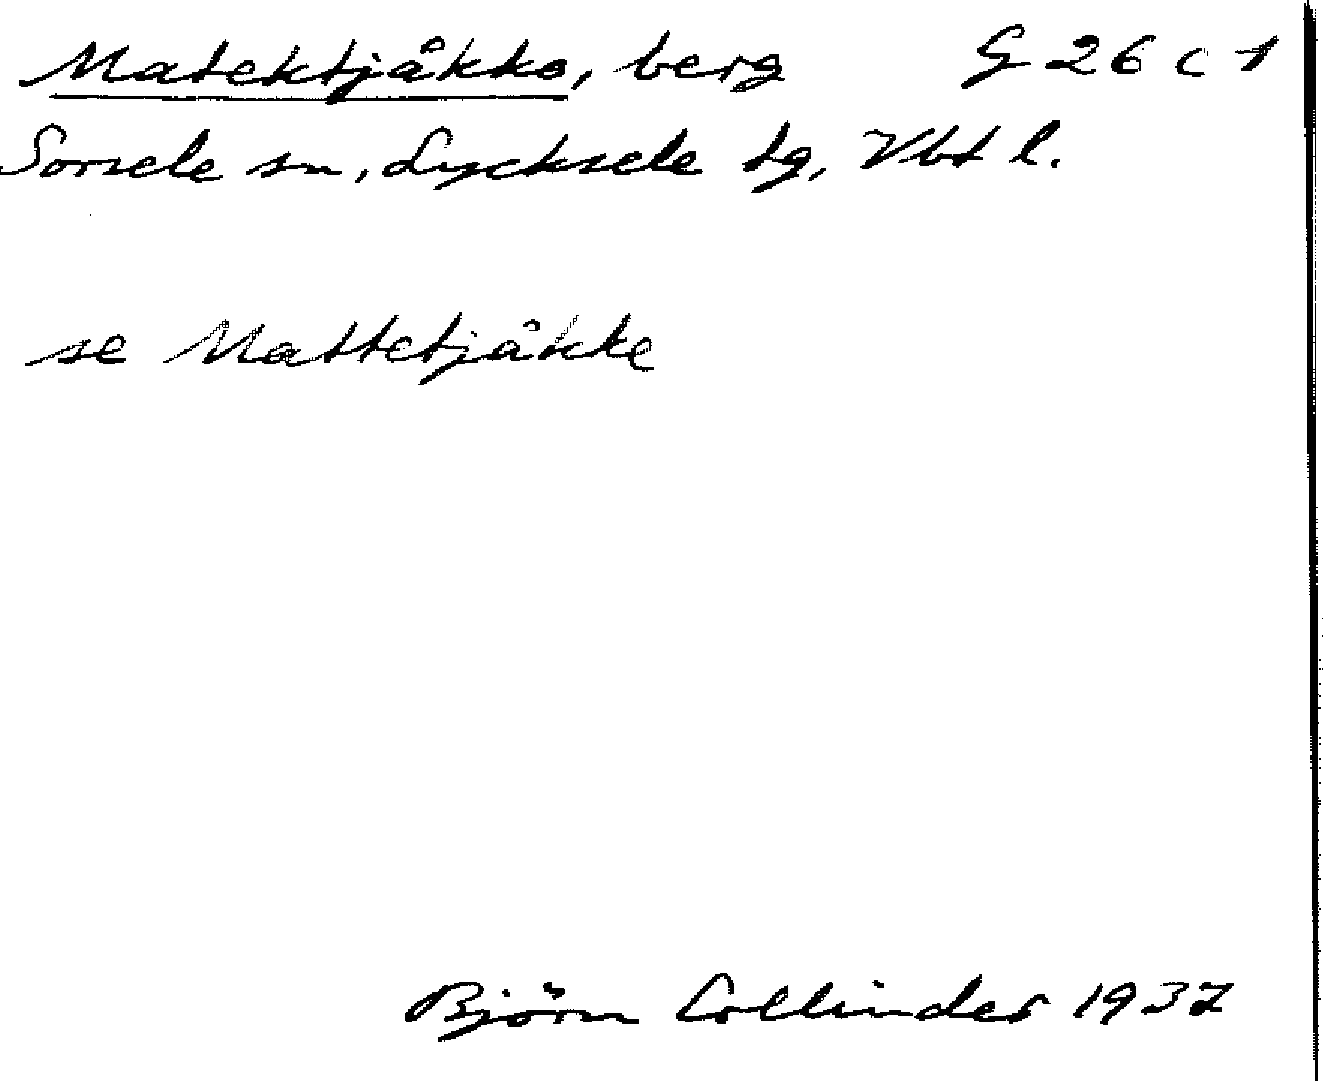 Matektjåkko, berg G 26 c 1
Sorsele sn, Lycksele tg, Vbt l.
se Mattetjåkke
Björn Collinder 1937